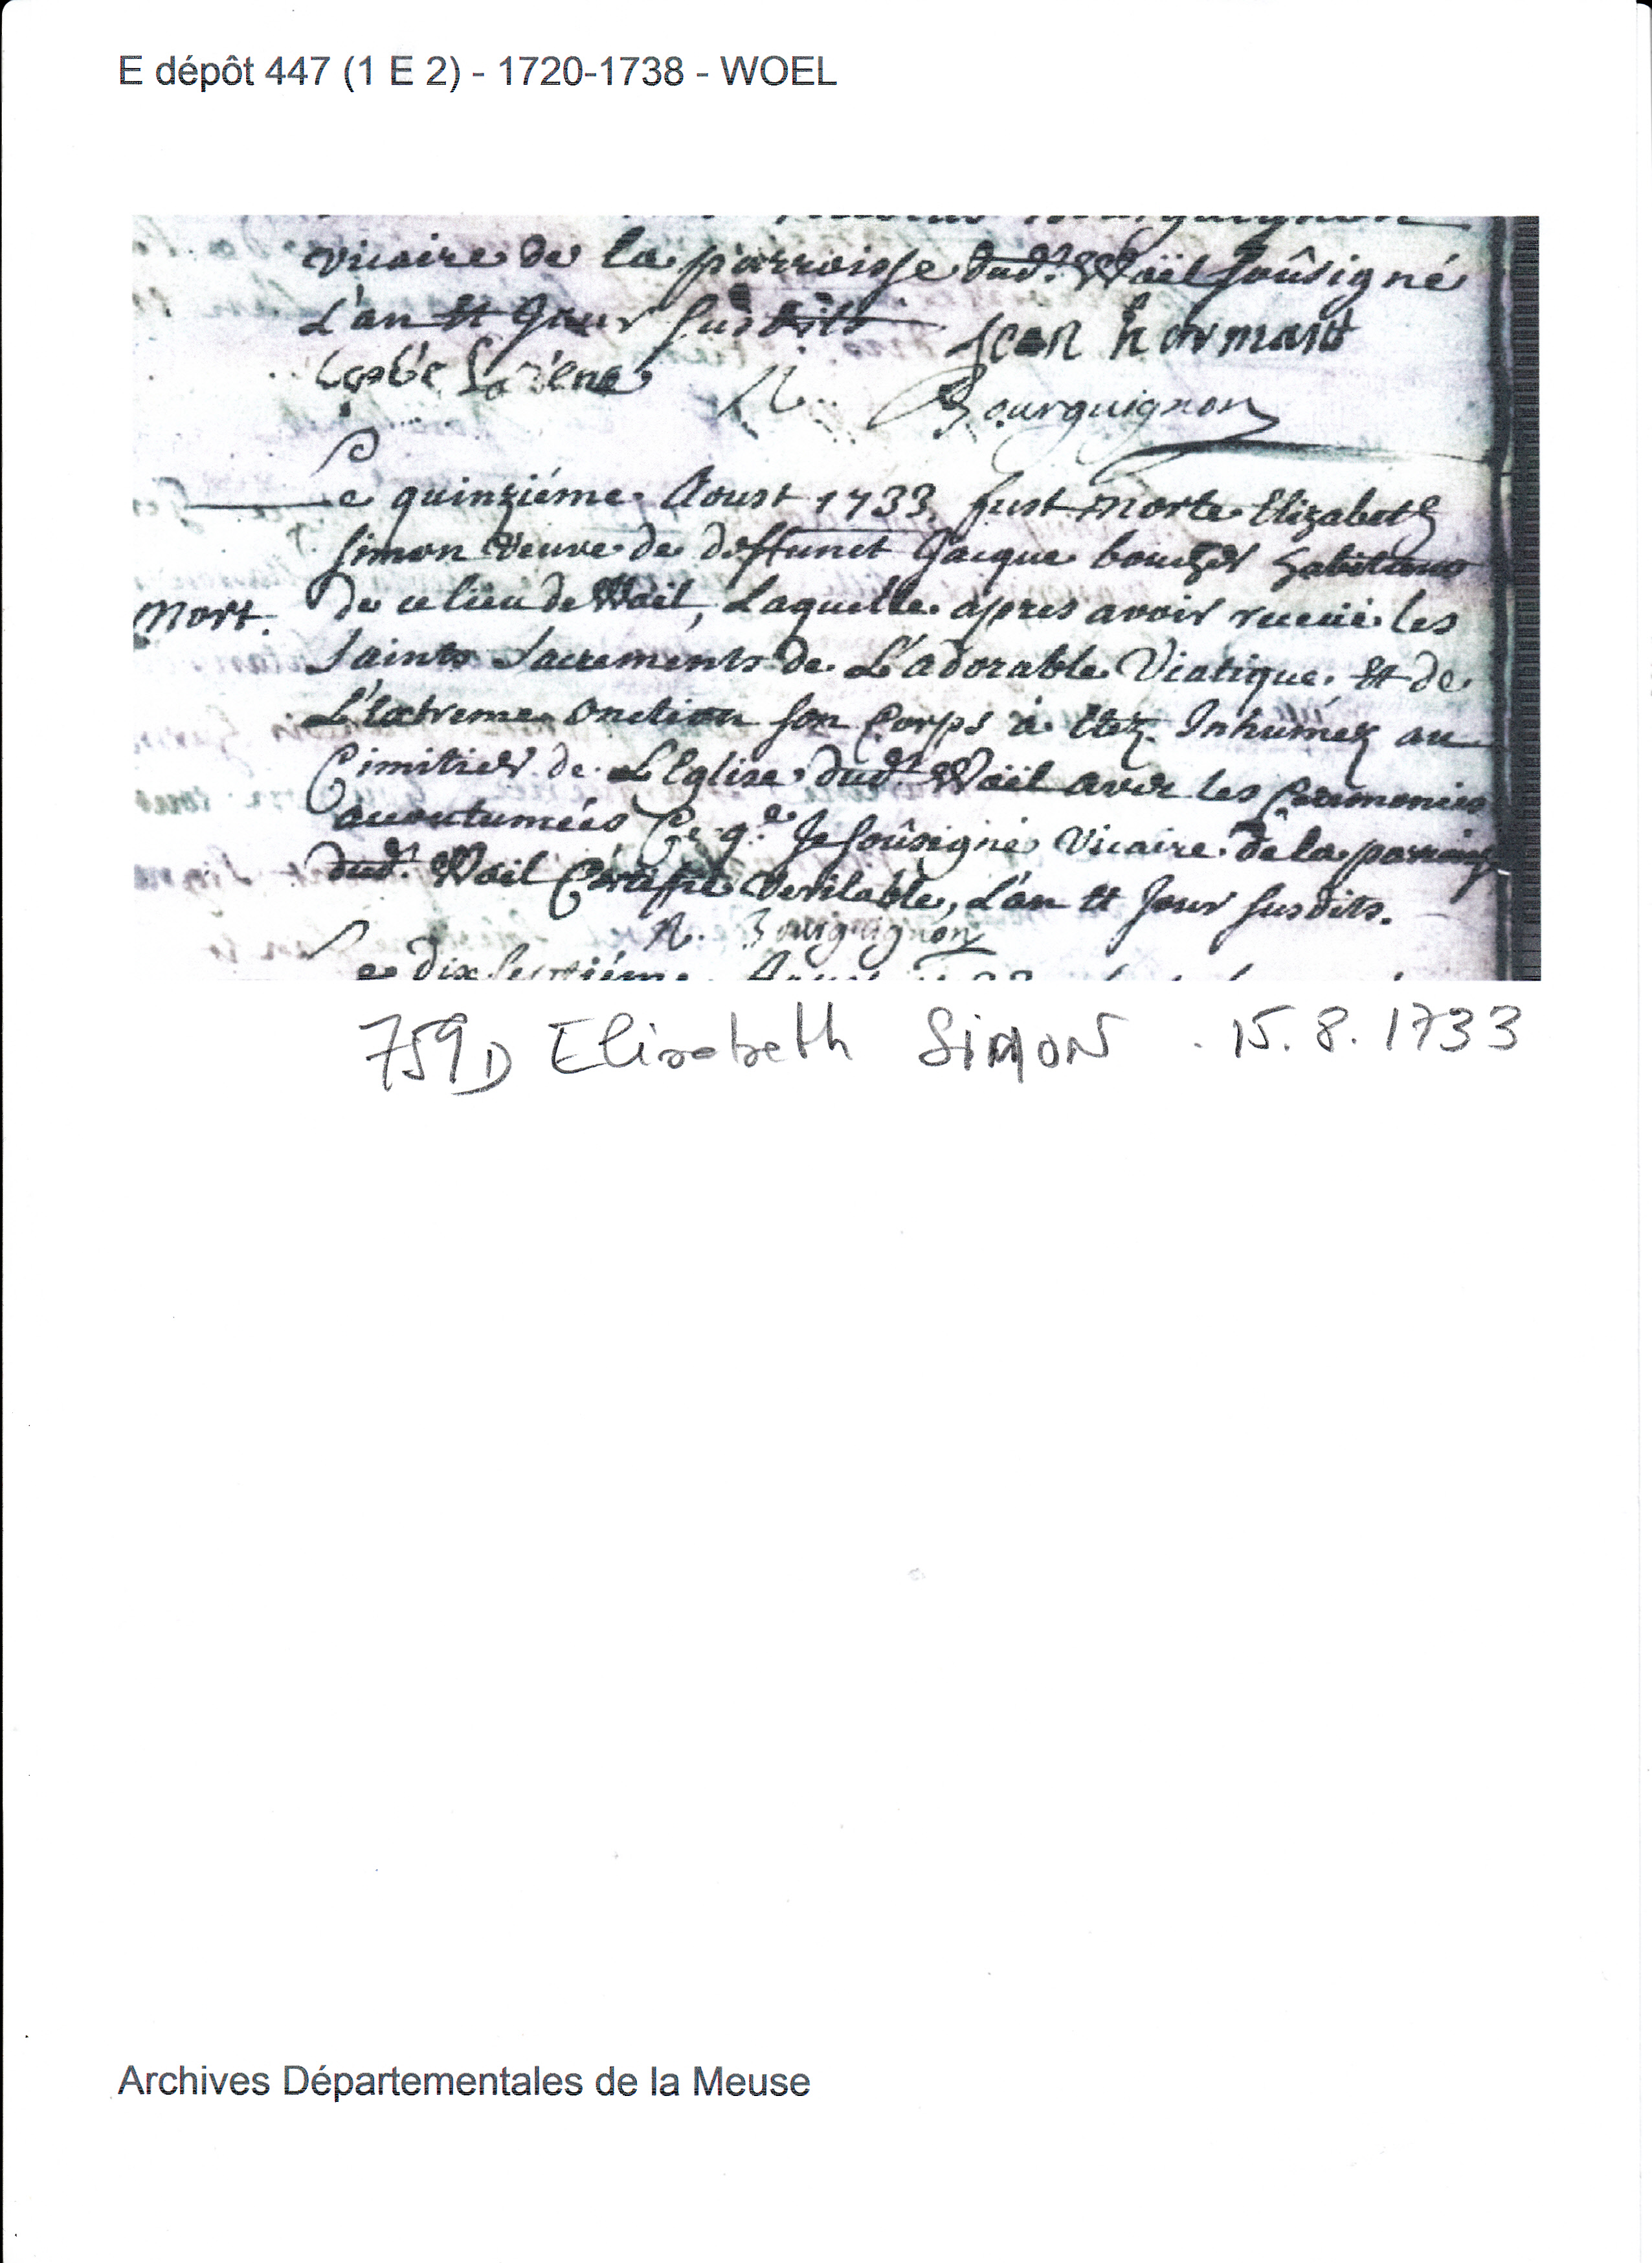 E dépôt 447 (1 E 2) - 1720-1738 - WOEL
Bourguignon
vicaire de la parroisse dud.t Woël soûsigné
L'an et Jour susdits Jean hormant
N. Bourguignon
Le quinziéme Aoust 1733. fust morte Elizabeth
Simon veuve de deffunct Jacque habitant
Mort.
de ce lieu de Woël, Laquelle apres avoir receüe les
saints sacrements de L'adorable Viatique et de
L'extreme onction son Corps à etez Inhumez au
Cimitier de L'Eglise dud.t Woël avec les Ceremonies
accoutumées Ce q.e Je soûsigné Vicaire de la parroisse
dud.t Woël Certifie Veritable, L'an et Jour susdits.
N. Bourguignon
Le dix septiéme Aoust
759D Elisabeth SIMON . 15.8.1733
Archives Départementales de la Meuse